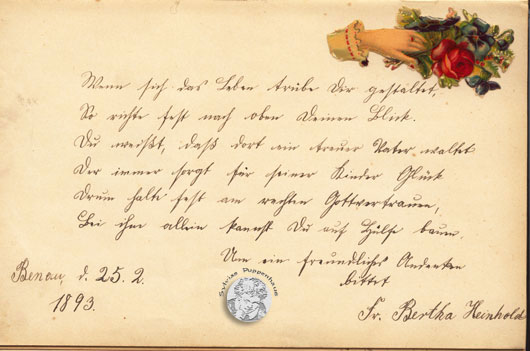 Wenn sich das Leben trübe Dir gestaltet,
So richte fest nach oben Deinen Blick.
Du weißt, daß dort ein treuer Vater waltet
Der immer sorgt für seiner Kinder Glück
Drum halte fest am rechten Gottvertrauen,
Bei ihm allein kannst Du auf Hülfe baun
Um ein freundliches Andenken
bittet
Benau, d. 25. 2.
1893.
Fr. Bertha Heinhold
Sylvias Puppenhaus